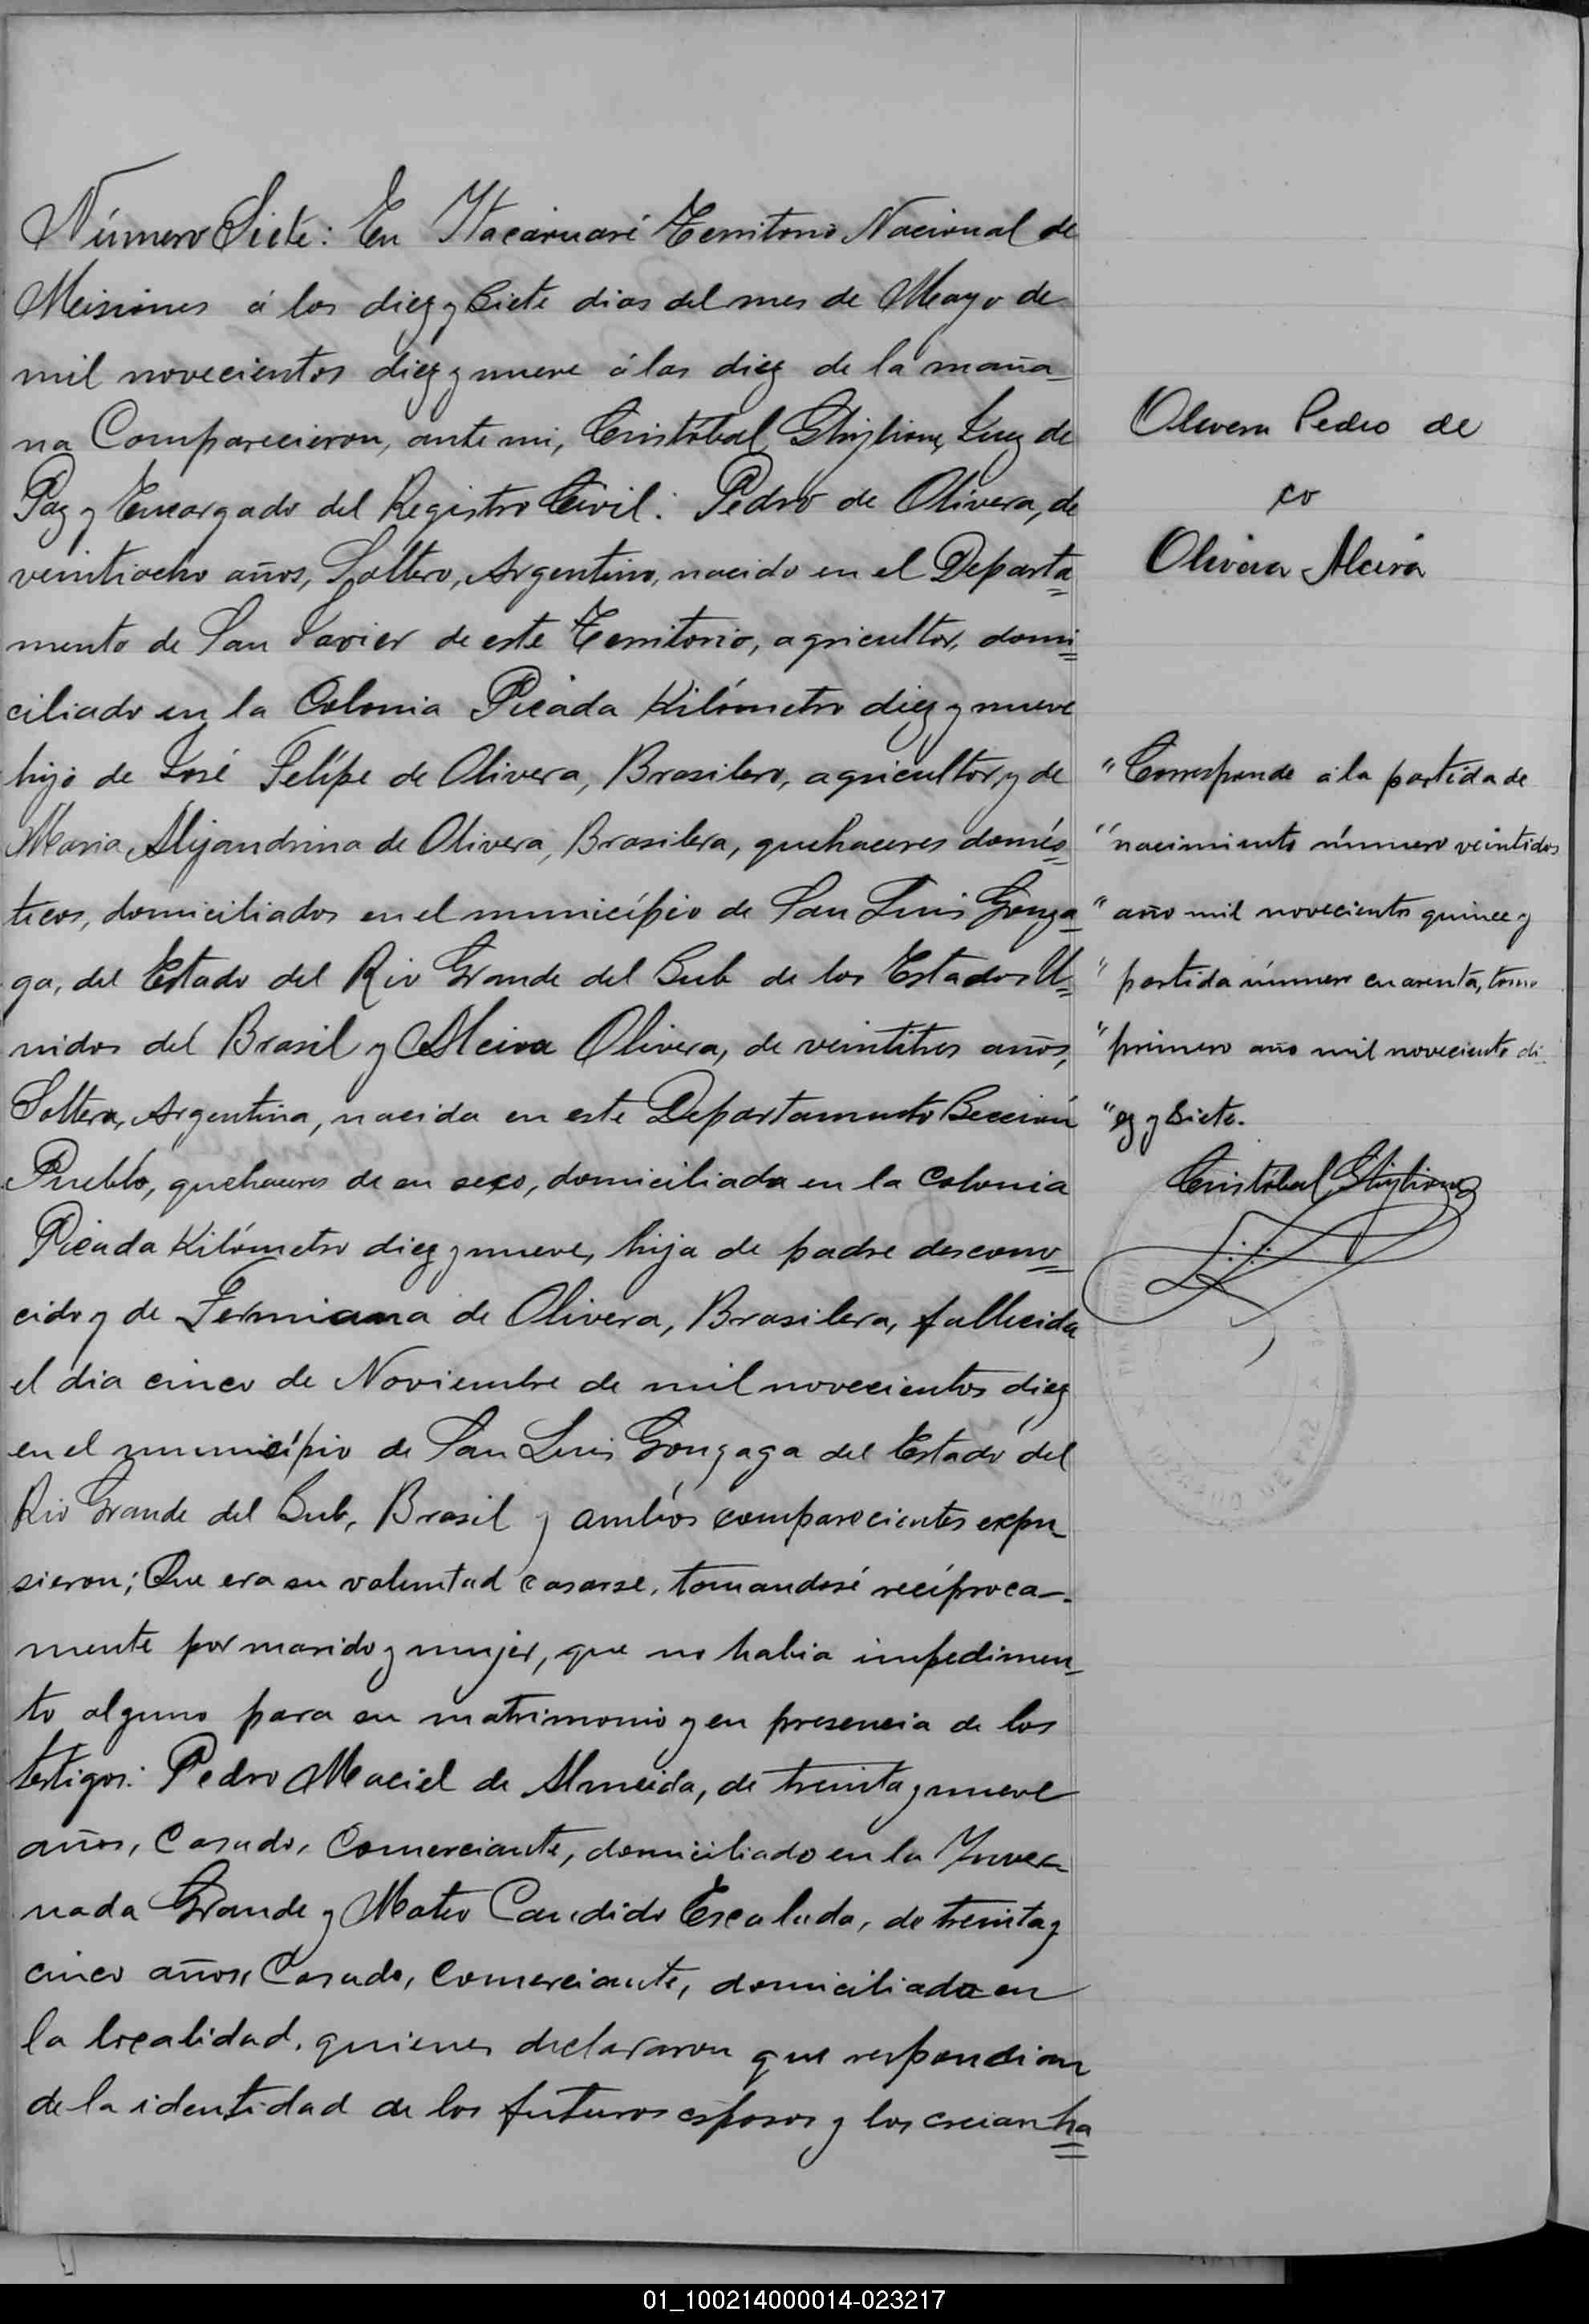 Número Siete: En Itacaruaré Territorio Nacional de
Misiones á los diez y Siete dias del mes de Mayo de
mil novecientos diez y nueve á las diez de la maña-
na Comparecieron, ante mi, Cristóbal Juez de
Paz y Encargado del Registro Civil: Pedro de Olivera, de
veintiocho años, Soltero, Argentino, nacido en el Departa=
mento de San Javier de este Territorio, agricultor, domi=
ciliado en la Colonia Picada Kilómetro diez y nueve
hijo de José Felípe de Olivera, Brasilero, agricultor, y de
Maria Alijandrina de Olivera, Brasilera, quehaceres domés=
ticos, domiciliados en el município de San Luis Gonza=
ga, del Estado del Rio Grande del Sub de los Estados U=
nidos del Brasil y Alcira Olivera, de veintitres años,
Soltera, Argentina, nacida en este Departamento Sección
Pueblo, quehaceres de su sexo, domiciliada en la Colonia
Picada Kilómetro diez y nueve, hija de padre descono=
cido y de Fermiana de Olivera, Brasilera, fallecida
el dia cinco de Noviembre de mil novecientos diez
en el município de San Luis Gonzaga del Estado del
Rio Grande del Sub, Brasil y ambos comparecientes expu-
sieron; Que era su voluntad casarse, tomandosé recíproca-
mente por marido y mujer, que no habia impedimen-
to alguno para su matrimonio y en presencia de los
testigos: Pedro Maciel de Almeida, de treinta y nueve
años, Casado, Comerciante, domiciliado en la Inver-
nada Grande y Mateo Candido Escalada, de treinta y
cinco años, Casado, Comerciante, domiciliado en
la localidad, quienes declararon que respondian
de la identidad de los futuros esposos y los creian ha=
Olivera Pedro de
co
Olivera Alcira
"Corresponde á la partida de
"nacimiento número veintidos
"año mil novecientos quince y
"partida número cuarenta, tomo
"primero año mil noveciento di-
"ez y Siete.
Cristóbal
JUZGADO DE PAZ
01_100214000014-023217